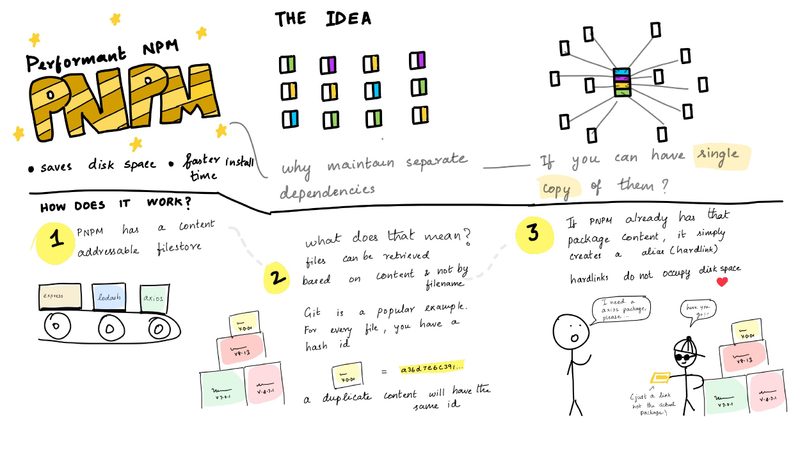 Performant NPM
PNPM
• saves disk space • faster install
time
THE IDEA
why maintain separate
dependencies
If you can have single
copy of them?
HOW DOES IT WORK?
1
PNPM has a content
addressable filestore
express
lodash
axios
2
what does that mean?
files can be retrieved
based on content & not by
filename
Git is a popular example.
For every file, you have a
hash id
= a36d7e6c39i...
a duplicate content will have the
same id
3
If PNPM already has that
package content, it simply
creates a alias (hardlink)
hardlinks do not occupy disk space
I need a
axios package,
please...
here you
go!!
(just a link
not the actual
package)